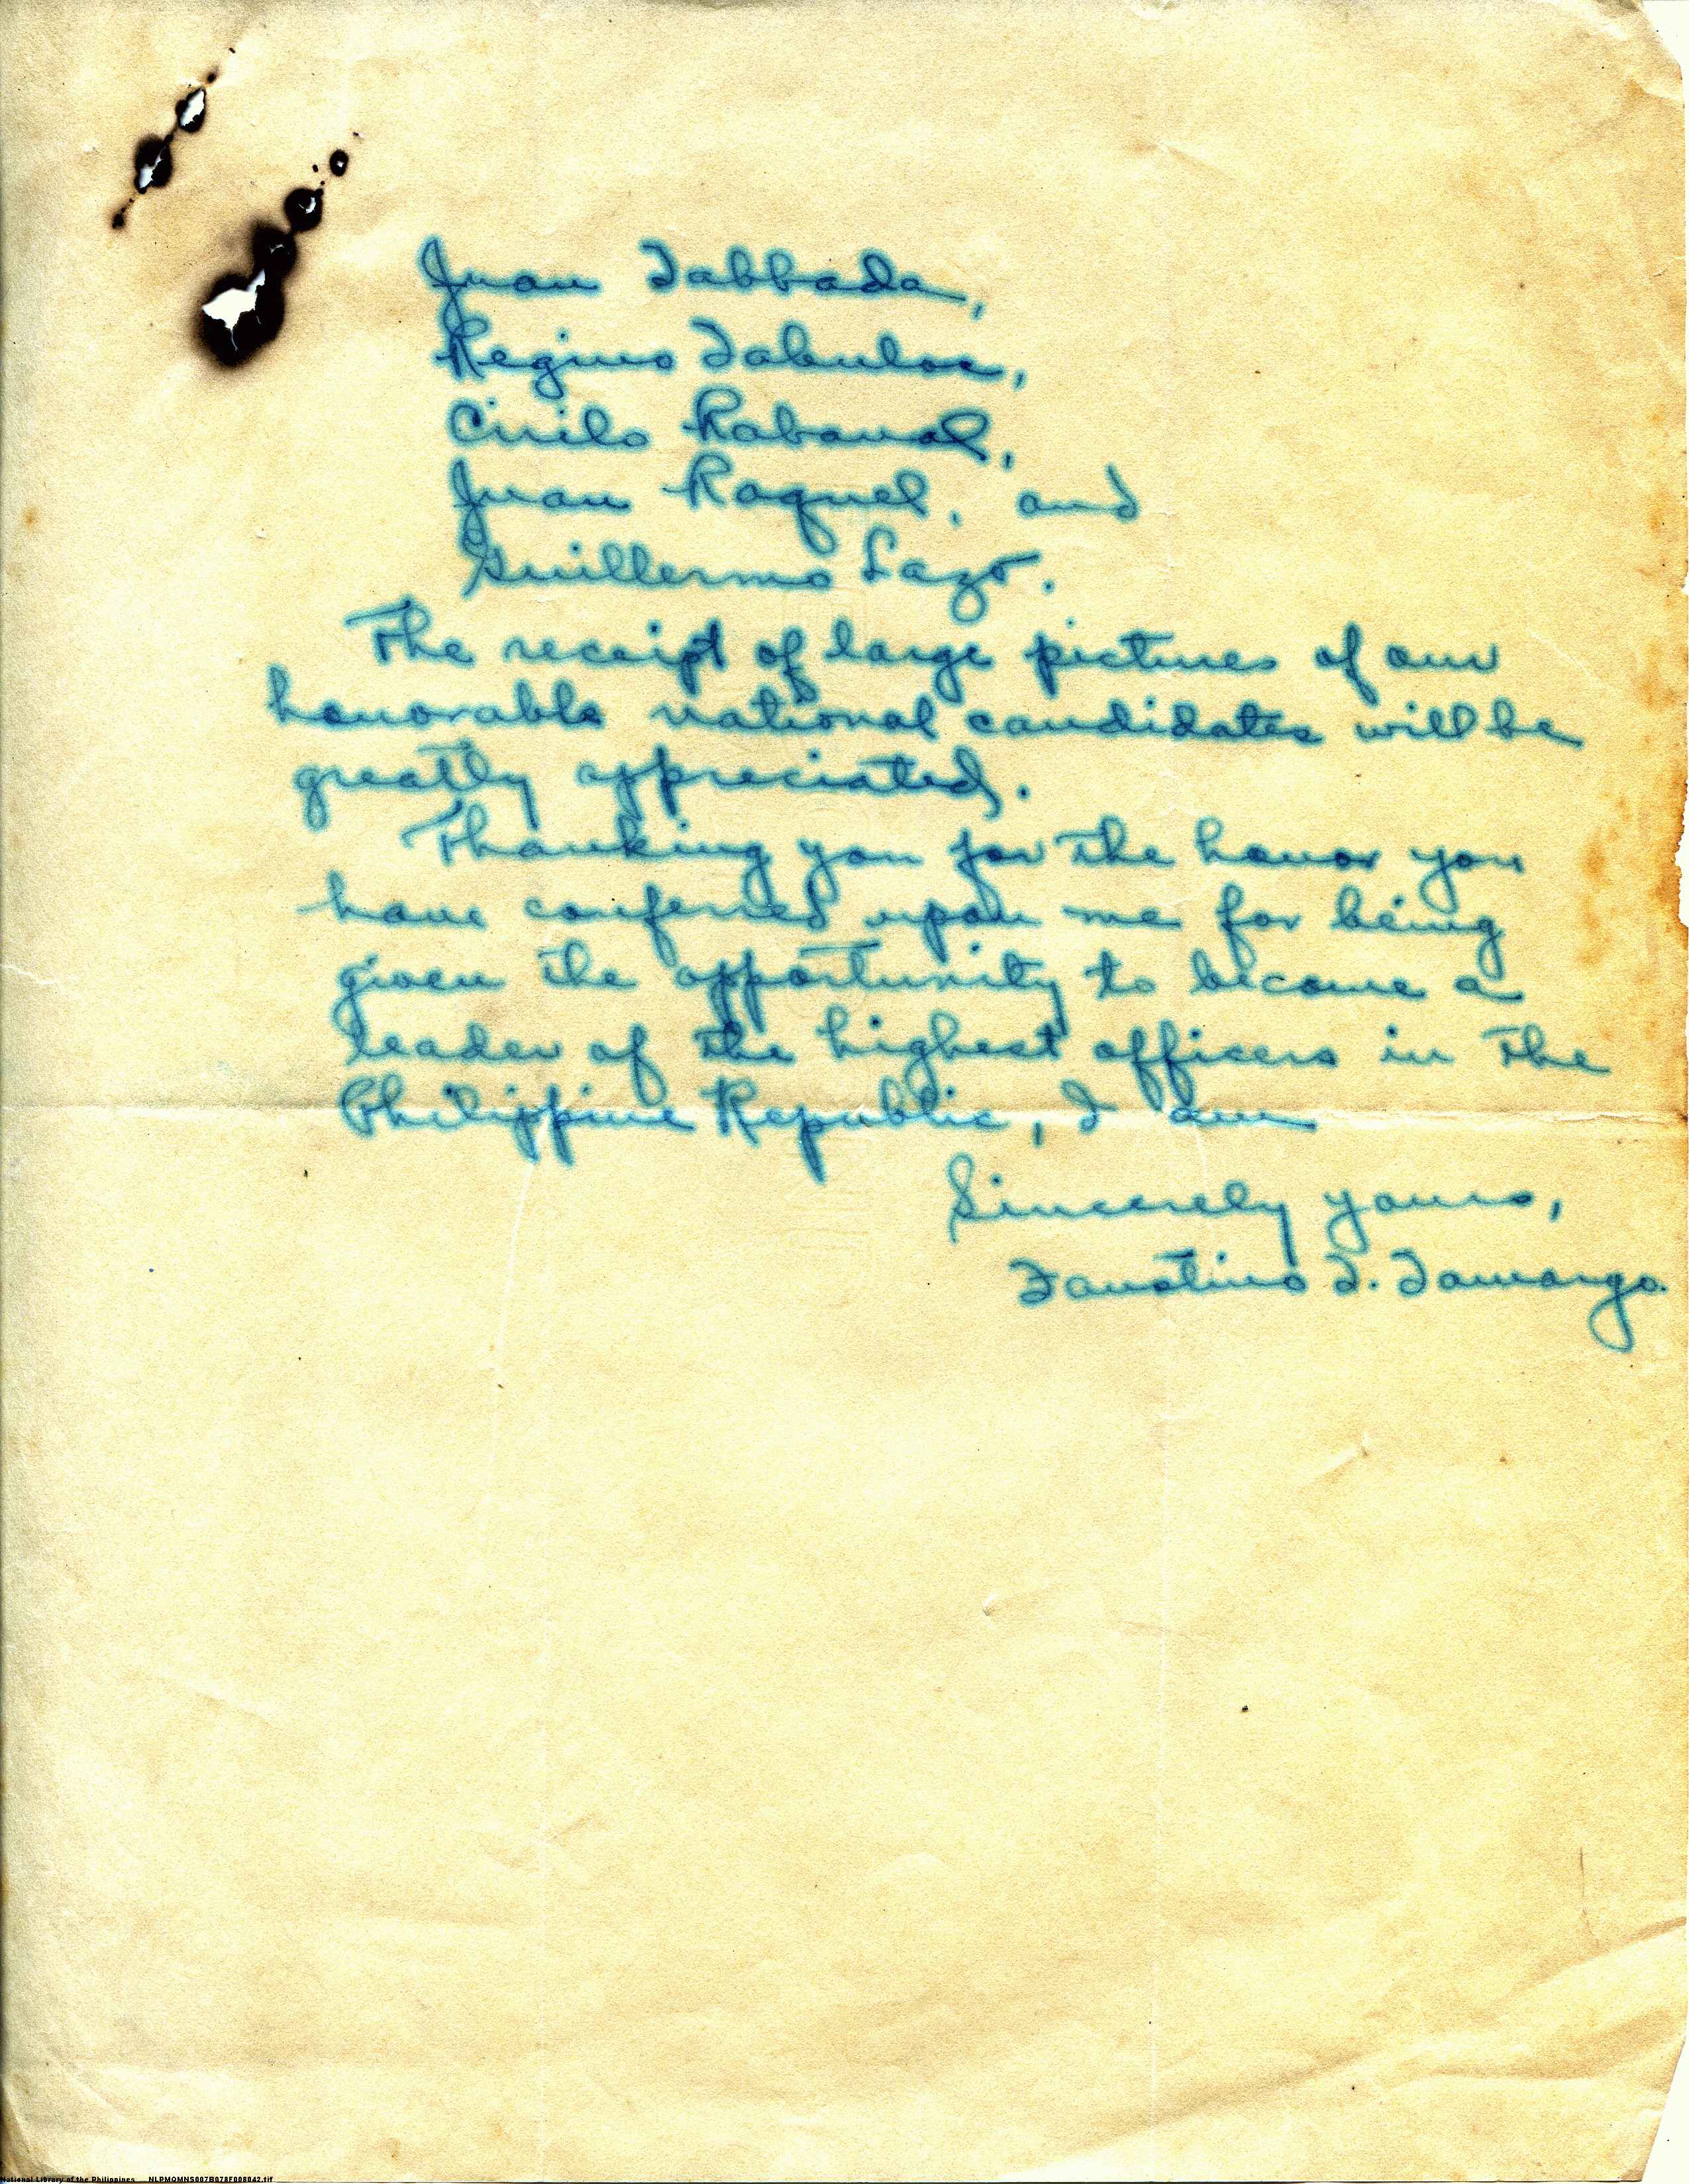 Juan Tabbada,
Regino Tabuloc,
Cirilo Rabanal,
Juan Raquel, and
Guillermo Lazo.
The receipt of large pictures of our
honorable national candidates will be
greatly appreciated.
Thanking you for the honor you
have conferred upon me for being
given the opportunity to become a
leader of the highest officers in the
Philippine Republic, I am
Sincerely yours,
Faustino T. Tamargo.
National Library of the Philippines NLPMQMNS007B078F008042.tif